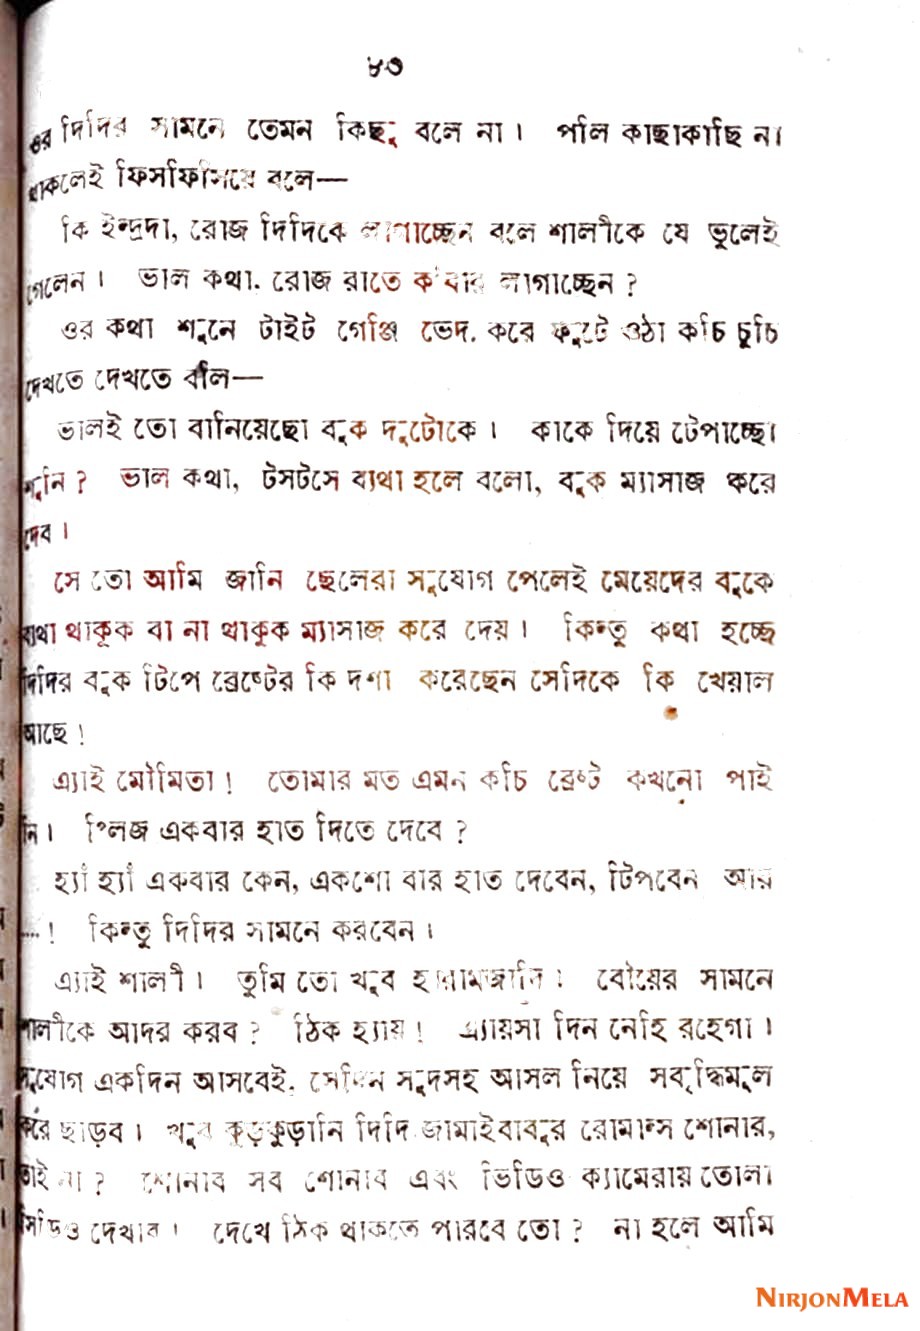 ৮৩
ওর দিদির সামনে তেমন কিছু বলে না। পলি কাছাকাছি না
থাকলেই ফিসফিসিয়ে বলে—
কি ইন্দ্রদা, রোজ দিদিকে লাগাচ্ছেন বলে শালীকে যে ভুলেই
গেলেন। ভাল কথা. রোজ রাতে ক'বার লাগাচ্ছেন ?
ওর কথা শুনে টাইট গেঞ্জি ভেদ. করে ফুটে ওঠা কচি চুচি
দেখতে দেখতে বলি—
ভালই তো বানিয়েছো বুক দুটোকে। কাকে দিয়ে টেপাচ্ছো
শুনি ? ভাল কথা, টসটসে ব্যথা হলে বলো, বুক ম্যাসাজ করে
দেব।
সে তো আমি জানি ছেলেরা সুযোগ পেলেই মেয়েদের বুকে
ব্যথা থাকুক বা না থাকুক ম্যাসাজ করে দেয়। কিন্তু কথা হচ্ছে
দিদির বুক টিপে ব্রেষ্টের কি দশা করেছেন সেদিকে কি খেয়াল
আছে !
এ্যাই মৌমিতা ! তোমার মত এমন কচি ব্রেষ্ট কখনো পাই
নি। প্লিজ একবার হাত দিতে দেবে ?
হ্যাঁ হ্যাঁ একবার কেন, একশো বার হাত দেবেন, টিপবেন আর
....! কিন্তু দিদির সামনে করবেন।
এ্যাই শালী। তুমি তো খুব হারামজাদি ! বৌয়ের সামনে
শালীকে আদর করব ? ঠিক হ্যায় ! এ্যায়সা দিন নেহি রহেগা।
সুযোগ একদিন আসবেই. সেদিন সুদসহ আসল নিয়ে সবৃদ্ধিমূল
করে ছাড়ব। খুব কুড়কুড়ানি দিদি জামাইবাবুর রোমান্স শোনার,
তাই না ? শোনাব সব শোনাব এবং ভিডিও ক্যামেরায় তোলা
সিডিও দেখাব। দেখে ঠিক থাকতে পারবে তো ? না হলে আমি
NIRJONMELA